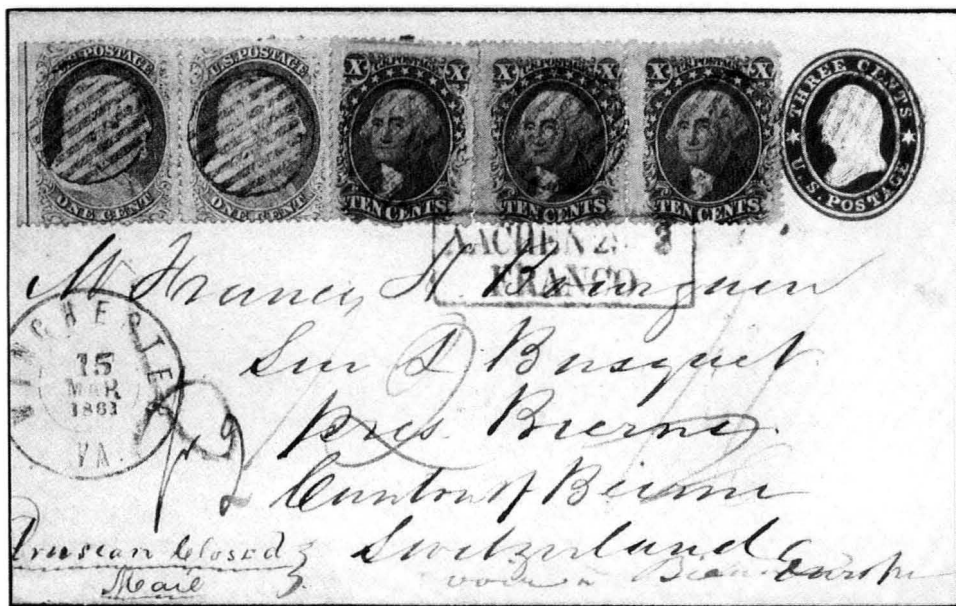 U.S. POSTAGE
ONE CENT
U.S. POSTAGE
ONE CENT
X U.S. POSTAGE X
TEN CENTS
X U.S. POSTAGE X
TEN CENTS
X U.S. POSTAGE X
TEN CENTS
THREE CENTS
U.S. POSTAGE
AACHEN 2 3
FRANCO
M
WINCHESTER
15
MAR
1861
VA.
Sur
Busquet
pres Bierne
Canton of Beirne
Switzerland
Europe
Prussian Closed
Mail